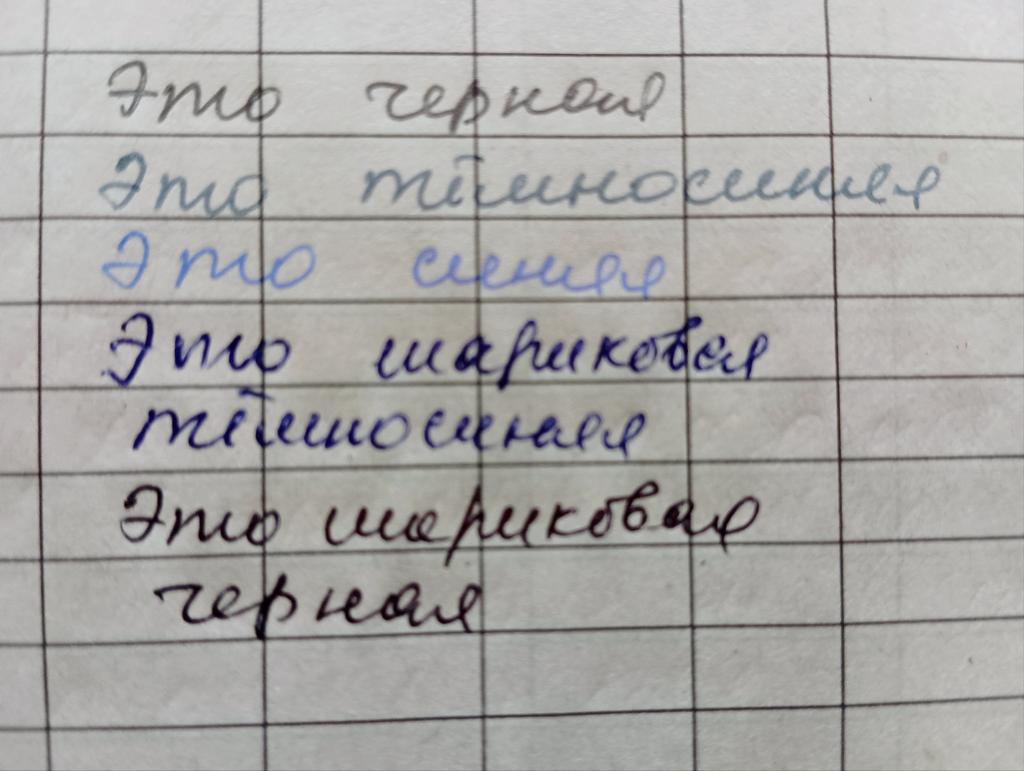 Это черная
Это тёмносиняя
Это синяя
Это шариковая
тёмносиняя
Это шариковая
черная